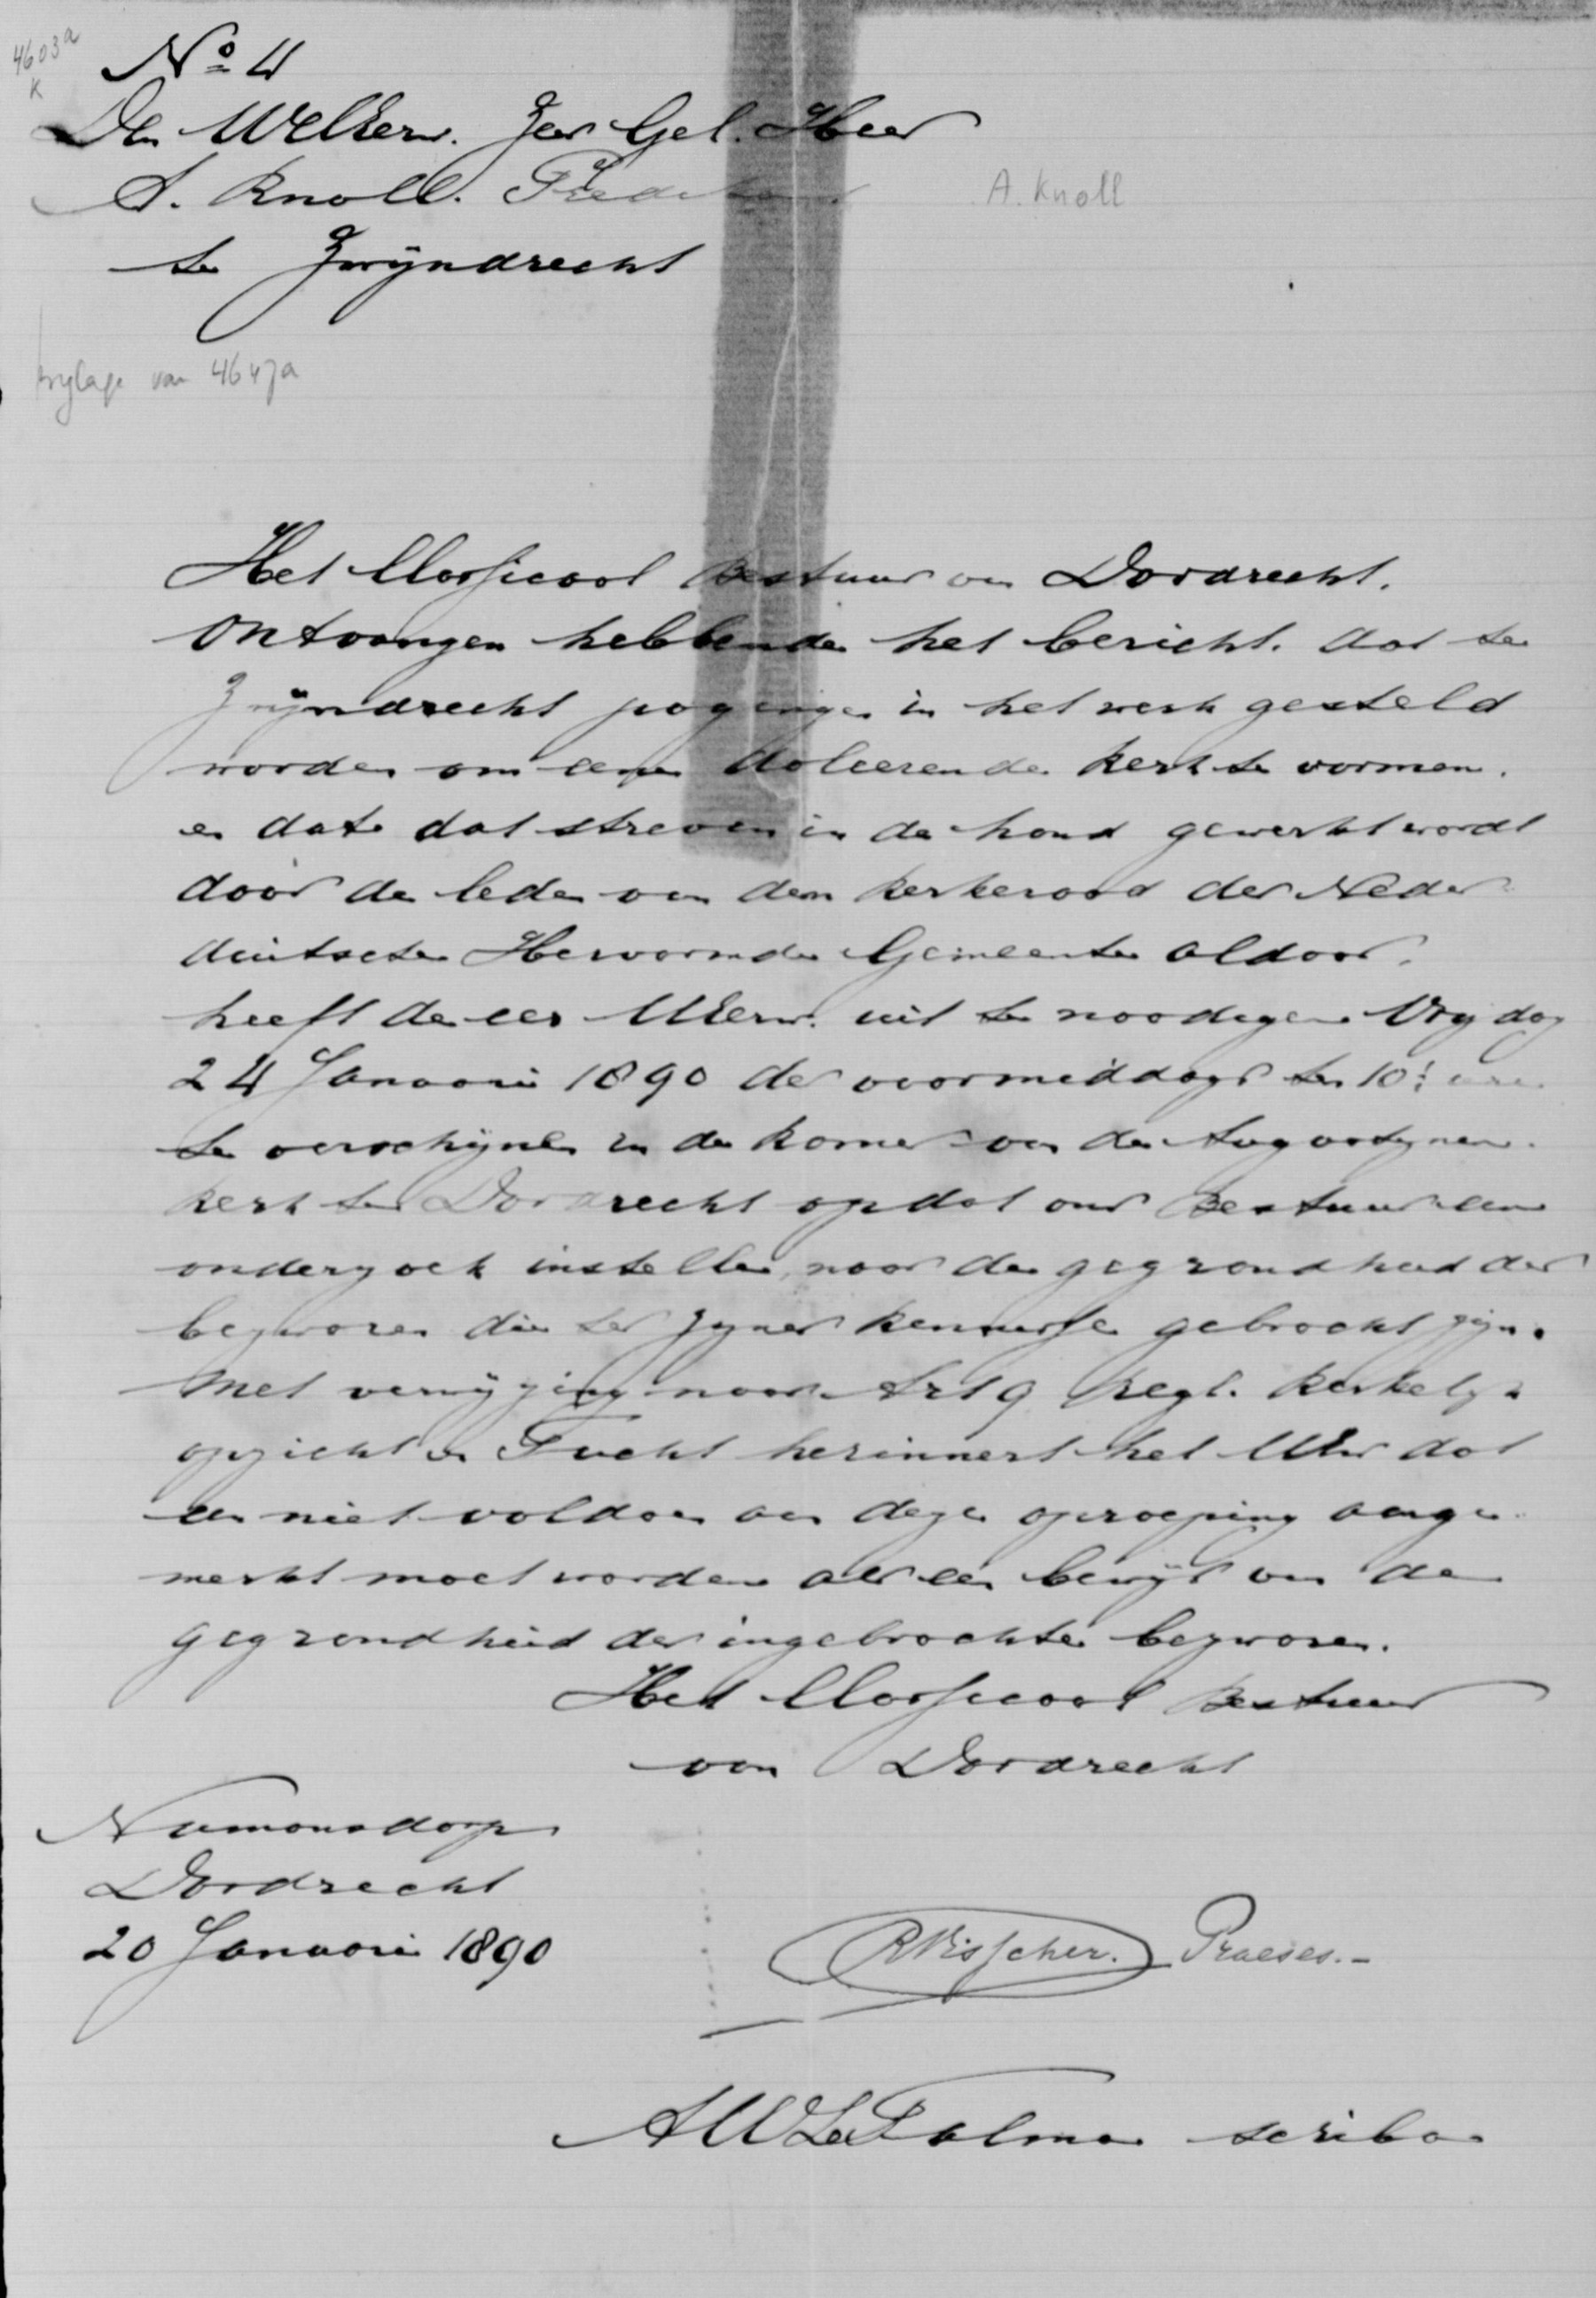 4603a
K
No 4
Den WelEerw. Zeer Gel. Heer
A. Knoll. Predikant
A. Knoll
te Zwijndrecht
bylage van 4647a
Het Classicaal Bestuur van Dordrecht.
Ontvangen hebbende het bericht. dat te
Zwijndrecht pogingen in het werk gesteld
worden om eene doleerende kerk te vormen.
en dat dat streven in de hand gewerkt wordt
door de leden van den kerkeraad der Neder
duitsche Hervormde Gemeente aldaar.
heeft de eer UEerw. uit te noodigen Vrydag
24 Januari 1890 des voormiddags ten 10½ ure
te verschijnen in de kamer van de Augustynen
kerk te Dordrecht opdat ons Bestuur een
onderzoek instelle naar de gegrondheid der
bezwaren die ter zyner kennisse gebracht zijn.
Met verwijzing naar Art 9 Regl. Kerkelijk
opzicht en Tucht herinnert het UEw dat
een niet voldoen aan deze oproeping aange
merkt moet worden als een bewijs van de
gegrondheid der ingebrachte bezwaren.
Het Classicaal Bestuur
van Dordrecht
Numansdorp
Dordrecht
20 Januari 1890
R Visscher. Praeses.-
Talma scriba